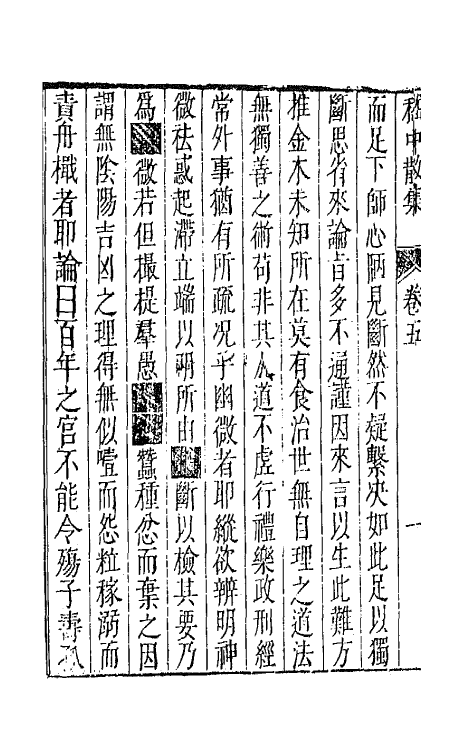 嵇中散集　卷五　一
而足下師心陋見斷然不疑繫决如此足以獨
斷思省來論旨多不通謹因來言以生此難方
推金木未知所在莫有食治世無自理之道法
無獨善之術苟非其人道不虛行禮樂政刑經
常外事猶有所疏况乎幽微者耶縱欲辨明神
微祛惑起滯立端以明所由斷以檢其要乃
爲微若但撮提羣愚蠶種忿而棄之因
謂無陰陽吉凶之理得無似噎而怨粒稼溺而
責舟檝者耶論曰百年之宫不能令殤子壽孤